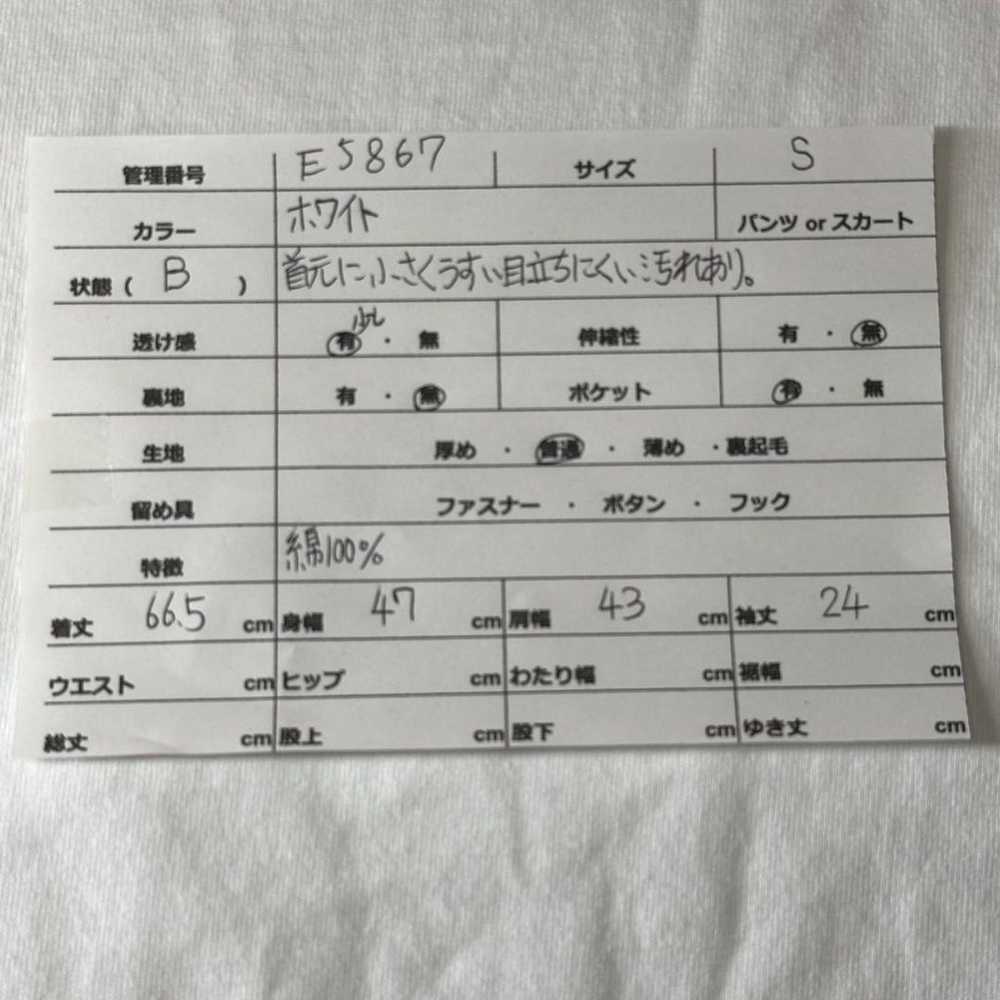 管理番号 E5867 サイズ S
カラー ホワイト パンツ or スカート
状態 ( B ) 首元に小さくうすい目立ちにくい汚れあり。
透け感 少し 有 ・ 無 伸縮性 有 ・ 無
裏地 有 ・ 無 ポケット 有 ・ 無
生地 厚め ・ 普通 ・ 薄め ・ 裏起毛
留め具 ファスナー ・ ボタン ・ フック
特徴 綿100%
着丈 66.5 cm 身幅 47 cm 肩幅 43 cm 袖丈 24 cm
ウエスト cm ヒップ cm わたり幅 cm 裾幅 cm
総丈 cm 股上 cm 股下 cm ゆき丈 cm